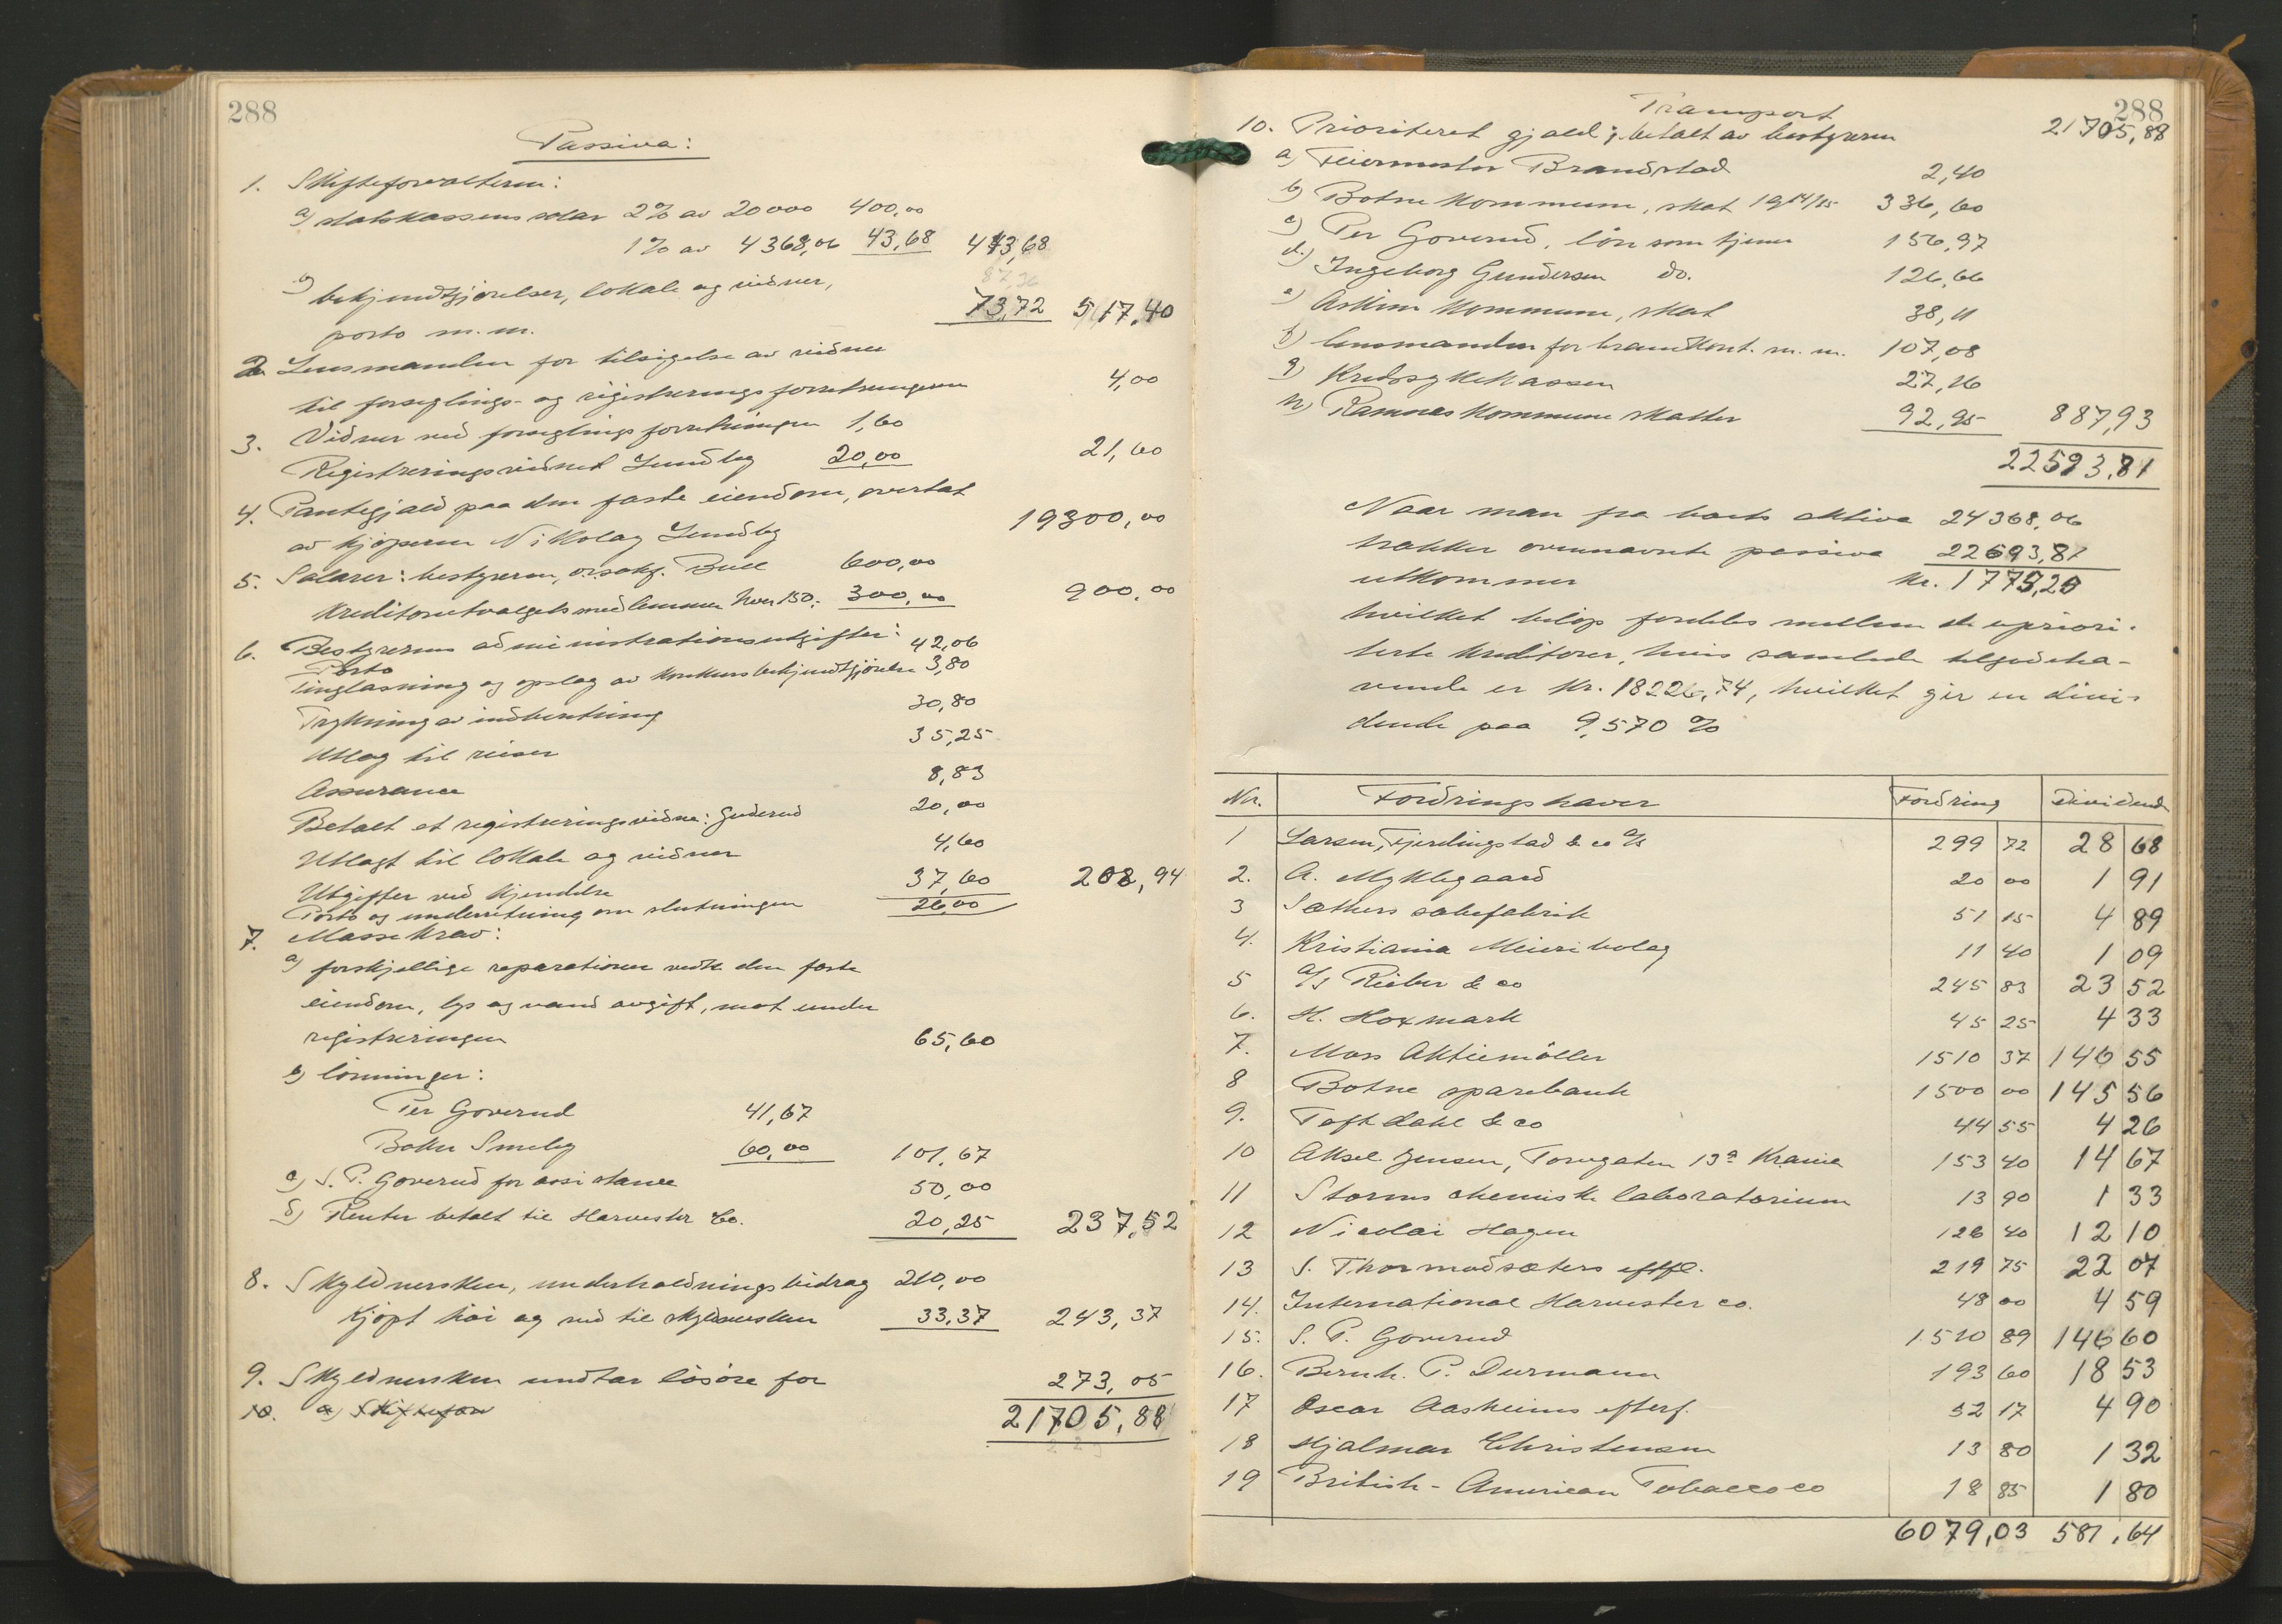 288
Passiva:
1. Skifteforvalteren:
a) statskassens solar 2% av 20000 400,00
1% av 4368,06 43,68 443,68
87,36
b) bekjendtgjørelser, lokale og vidner,
porto m.m. 73,72 517,40
2. Lensmanden for tilsigelse av vidner
til forseglings- og registreringsforretningen 4,00
3. Vidner ved forseglingsforretningen 1,60
Registreringsvidnet Lundby 20,00 21,60
4. Pantegjæld paa den faste eiendom, overtat
av kjøperen Nikolay Lundby 19300,00
5. Salærer: bestyreren, o.r.sakf. Bull 600,00
kreditorutvalgets medlemmer hver 150,- 300,00 900,00
6. Bestyrerens administrationsutgifter:
Porto 42,06
Tinglæsning og opslag av konkursbekjendtgjørelse 3,80
Trykning av indberetning 30,80
Utlæg til reiser 35,25
Assurance 8,83
Betalt et registreringsvidne: Guderud 20,00
Utlagt til lokale og vidner 4,60
Utgifter ved kjendelse 37,60 208,94
Porto og underretning om slutningen 26,00
7. Massekrav:
a) forskjellige reparationer vedk. den faste
eiendom, lys og vand avgift, mat under
registreringen 65,60
b) lønninger:
Per Goverud 41,67
Boker Smeby 60,00 101,67
c) S. P. Goverud for assistance 50,00
d) Renter betalt til Harvester Co. 20,25 237,52
8. Skyldnersken, underholdningsbidrag 210,00
Kjøpt høi og ved til skyldnersken 33,37 243,37
9. Skyldnersken undtar løsøre for 273,05
10. a) Skiftefor
21705,88
288
Transport 21705,88
10. Prioriteret gjæld; betalt av bestyreren
a) Feiermester Brandstad 2,40
b) Botne kommune, skat 1914/15 336,60
c) Per Goverud, løn som tjener 156,97
d.) Ingeborg Gundersen do. 126,66
e) Askim kommune, skat 38,11
f) lensmanden for brandkont. m. m. 107,08
g) Kredssykekassen 27,16
h) Ramnes kommune skatter 92,95 887,93
22593,81
Naar man fra boets aktiva 24368,06
trækker ovennævnte passiva 22593,81
utkommer kr. 1775,25
hvilket beløp fordeles mellem de upriori-
terte kreditorer, hvis samlede tilgodeha-
vende er kr. 18226,74, hvilket gir en divi-
dende paa 9,570 %
Nr. Fordringshaver Fordring Dividende
1 Larsen, Fjerdingstad & co A/S 299 72 28 68
2. A. Myklegaard 20 00 1 91
3 Sæthers sæbefabrik 51 15 4 89
4. Kristiania Meieribolag 11 40 1 09
5 A/S Rieber & co 245 83 23 52
6. H. Hoxmark 45 25 4 33
7. Moss Aktiemøller 1510 37 146 55
8 Botne sparebank 1500 00 145 56
9. Toftdahl & co 44 55 4 26
10 Aksel Jensen, Torvgaten 13a Krania 153 40 14 67
11 Storms chemiske laboratorium 13 90 1 33
12 Nicolai Hagen 126 40 12 10
13 S. Thormodsæters eftfl. 219 75 22 07
14. International Harvester co. 48 00 4 59
15. S. P. Goverud 1510 89 146 60
16. Bernh. P. Durmann 193 60 18 53
17 Oscar Aasheims efterf. 52 17 4 90
18 Hjalmar Christensen 13 80 1 32
19 British-American Tobacco co 18 85 1 80
6079,03 581,64